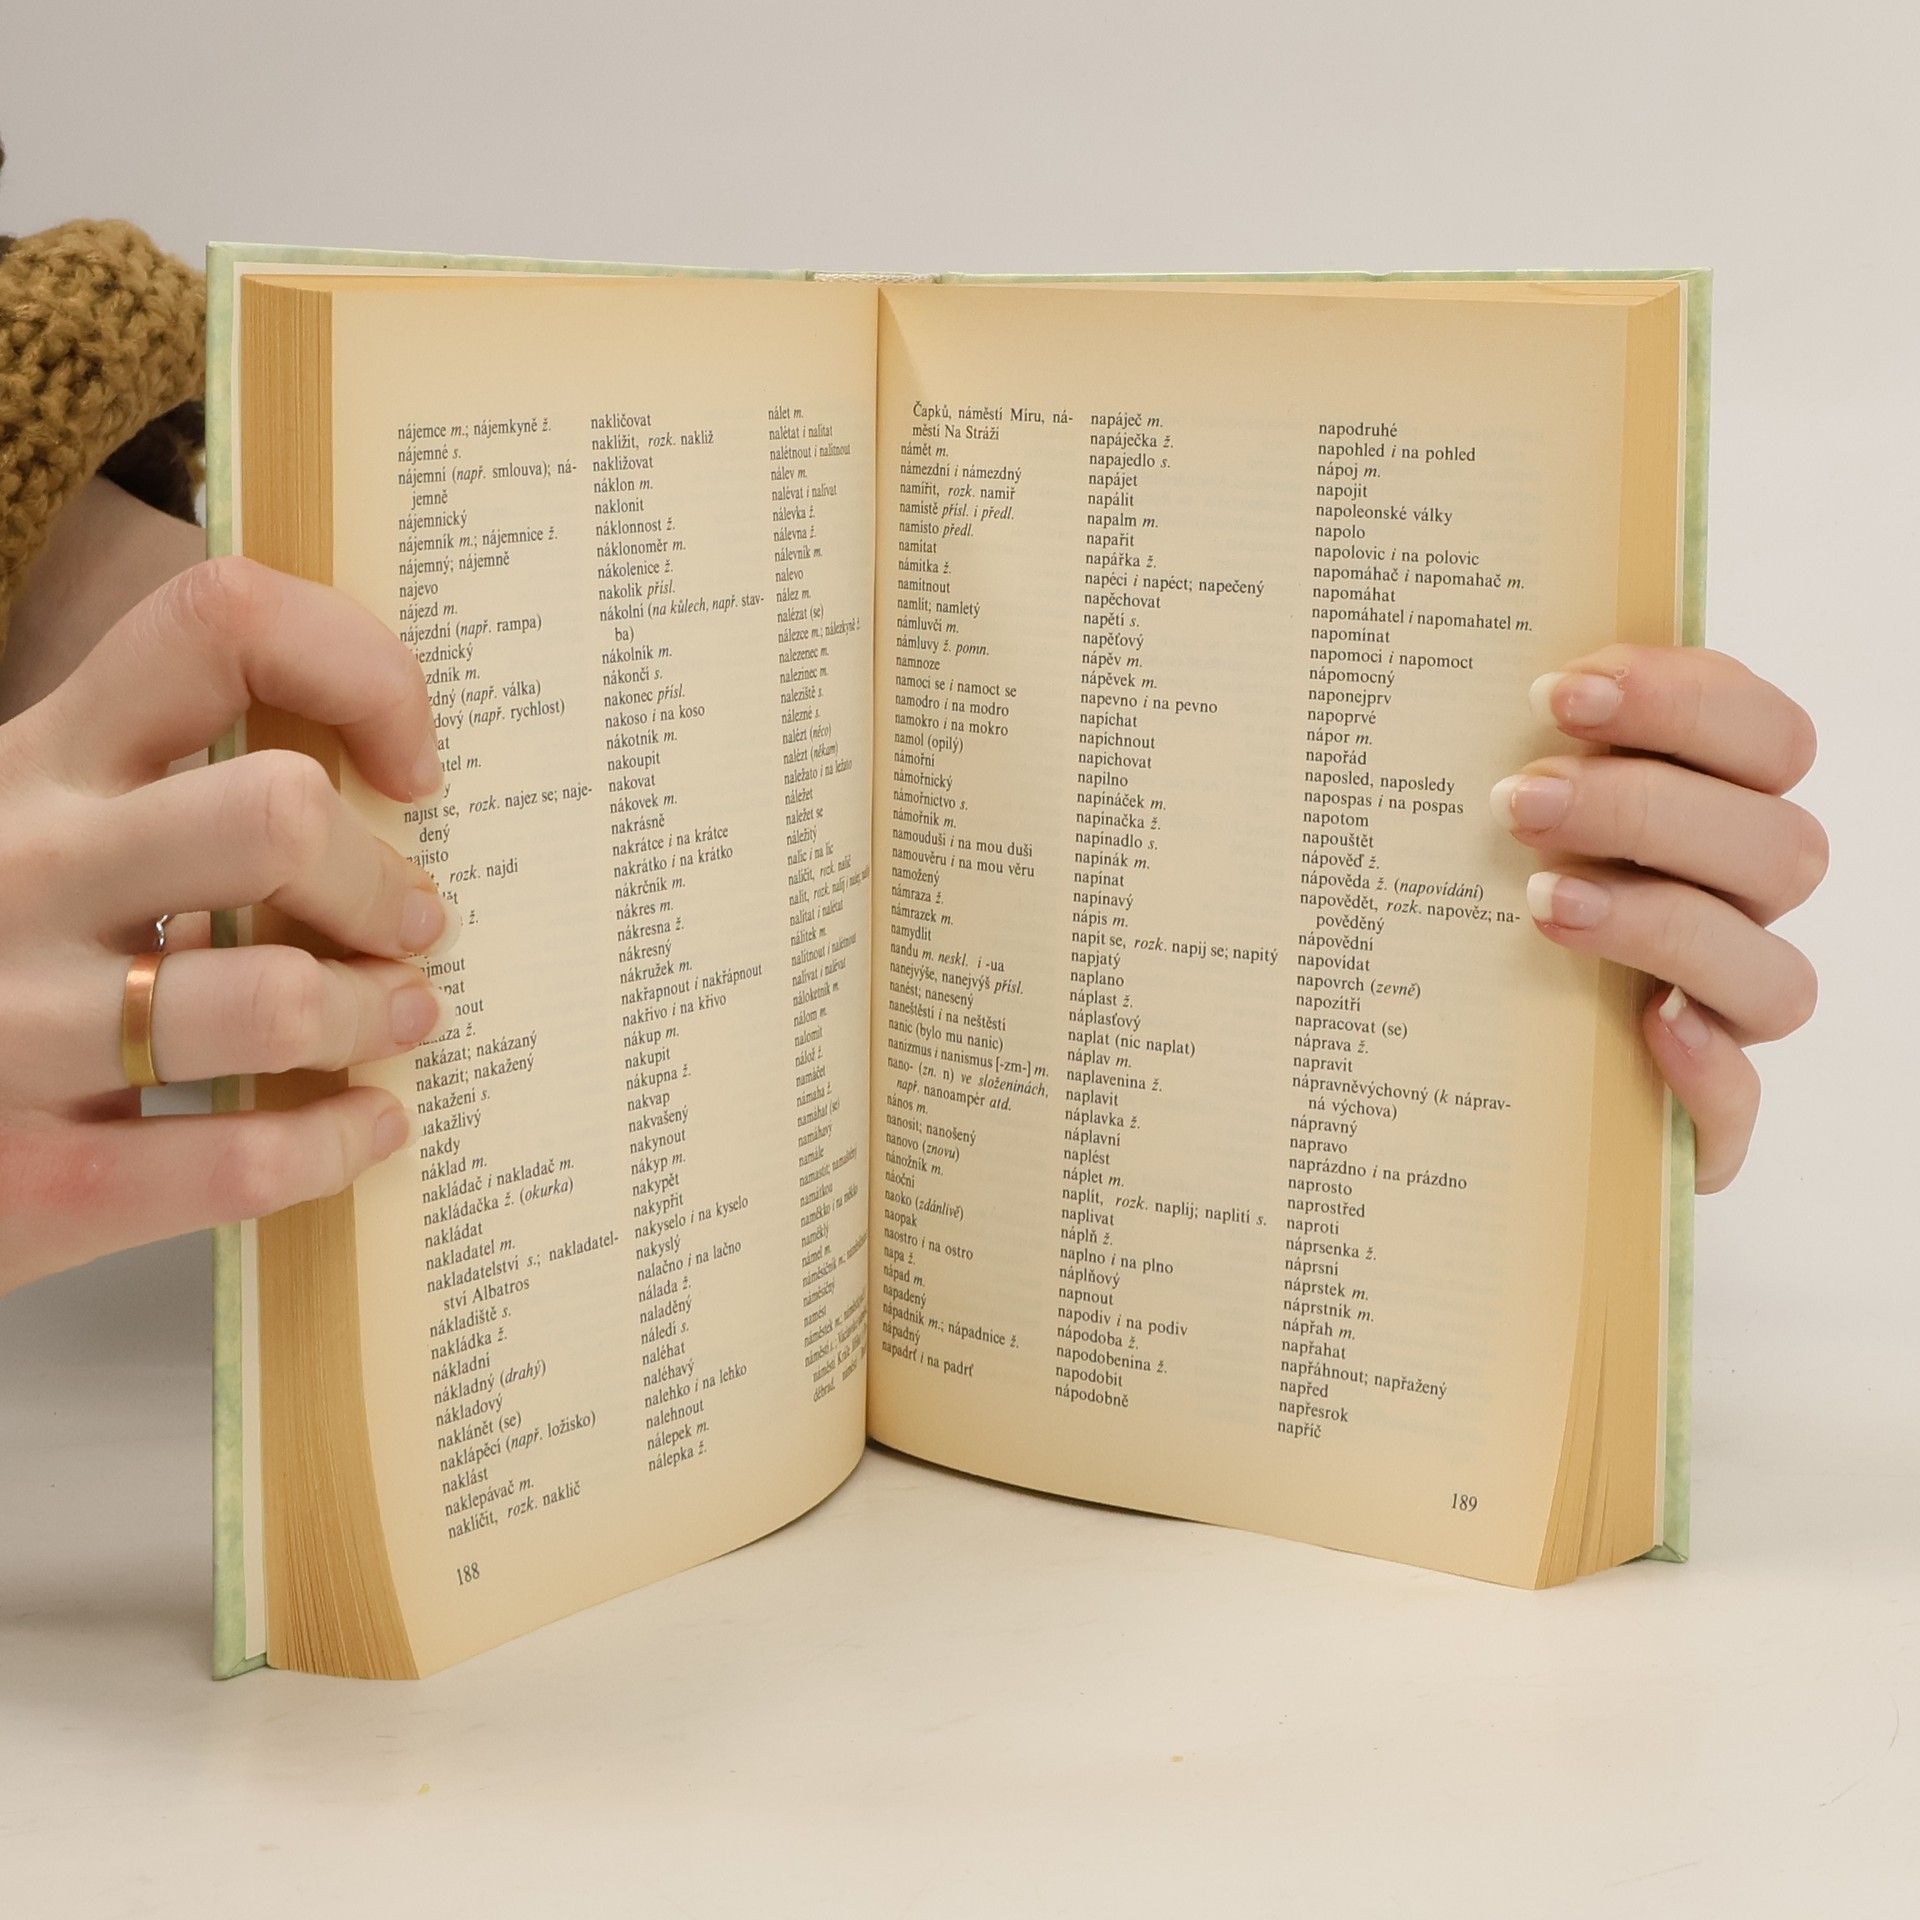 nájemce m.; nájemkyně ž.
nájemné s.
nájemní (např. smlouva); ná-
jemně
nájemnický
nájemník m.; nájemnice ž.
nájemný; nájemně
najevo
nájezd m.
nájezdní (např. rampa)
(např. válka)
(např. rychlost)
m.
najíst se, rozk. najez se; naje-
dený
najisto
rozk. najdi
ž.
ž.
nakázat; nakázaný
nakazit; nakažený
nakažení s.
nakažlivý
nakdy
náklad m.
nakládač i nakladač m.
nakládačka ž. (okurka)
nakládat
nakladatel m.
nakladatelství s.; nakladatel-
ství Albatros
nákladiště s.
nakládka ž.
nákladní
nákladný (drahý)
nákladový
naklánět (se)
naklápěcí (např. ložisko)
naklást
naklepávač m.
naklíčit, rozk. naklič
188
nakličovat
naklížit, rozk. nakliž
nakližovat
náklon m.
naklonit
náklonnost ž.
náklonoměr m.
nákolenice ž.
nakolik přísl.
nákolní (na kůlech, např. stav-
ba)
nákolník m.
nákončí s.
nakonec přísl.
nakoso i na koso
nákotník m.
nakoupit
nakovat
nákovek m.
nakrásně
nakrátce i na krátce
nakrátko i na krátko
nákrčník m.
nákres m.
nákresna ž.
nákresný
nákružek m.
nakřapnout i nakřápnout
nakřivo i na křivo
nákup m.
nakupit
nákupna ž.
nakvap
nakvašený
nakynout
nákyp m.
nakypět
nakypřit
nakyselo i na kyselo
nakyslý
nalačno i na lačno
nálada ž.
naladěný
náledí s.
naléhat
naléhavý
nalehko i na lehko
nalehnout
nálepek m.
nálepka ž.
nálet m.
nalétat i nalítat
nalétnout i nalítnout
nálev m.
nalévat i nalívat
nálevka ž.
nálevna ž.
nálevník m.
nalevo
nález m.
nalézat (se)
nálezce m.; nálezkyně ž.
nalezenec m.
nalezinec m.
naleziště s.
nálezné s.
nalézt (něco)
nalézt (někam)
naležato i na ležato
náležet
naležet se
náležitý
nalíc i na líc
nalíčit, rozk. nalič
nalít, rozk. nalij
nalítat i nalétat
nálitek m.
nalítnout i nalétnout
nalívat i nalévat
náloketník m.
nálom m.
nalomit
nálož ž.
namáčet
námaha ž.
namáhat (se)
namáhavý
namále
namastit; namaštěný
namátkou
naměkko i na měkko
naměklý
námel m.
náměsíčník m.
náměsíčný
namést
náměstek m.
náměstí Krále Jiřího
děbrad, náměstí
Čapků, náměstí Míru, ná-
městí Na Stráži
námět m.
námezdní i námezdný
namířit, rozk. namiř
namístě přísl. i předl.
namísto předl.
namítat
námitka ž.
namítnout
namlít; namletý
námluvčí m.
námluvy ž. pomn.
namnoze
namoci se i namoct se
namodro i na modro
namokro i na mokro
namol (opilý)
námořní
námořnický
námořnictvo s.
námořník m.
namouduši i na mou duši
namouvěru i na mou věru
namožený
námraza ž.
námrazek m.
namydlit
nandu m. neskl. i -ua
nanejvýše, nanejvýš přísl.
nanést; nanesený
naneštěstí i na neštěstí
nanic (bylo mu nanic)
nanizmus i nanismus [-zm-] m.
nano- (zn. n) ve složeninách,
např. nanoampér atd.
nános m.
nanosit; nanošený
nanovo (znovu)
nánožník m.
náoční
naoko (zdánlivě)
naopak
naostro i na ostro
napa ž.
nápad m.
napadený
nápadník m.; nápadnice ž.
nápadný
napadrť i na padrť
napáječ m.
napáječka ž.
napajedlo s.
napájet
napálit
napalm m.
napařit
napářka ž.
napéci i napéct; napečený
napěchovat
napětí s.
napěťový
nápěv m.
nápěvek m.
napevno i na pevno
napíchat
napíchnout
napichovat
napilno
napínáček m.
napínačka ž.
napínadlo s.
napínák m.
napínat
napínavý
nápis m.
napít se, rozk. napij se; napitý
napjatý
naplano
náplast ž.
náplasťový
naplat (nic naplat)
náplav m.
naplavenina ž.
naplavit
náplavka ž.
náplavní
naplést
náplet m.
naplít, rozk. naplij; naplití s.
naplivat
náplň ž.
naplno i na plno
náplňový
napnout
napodiv i na podiv
nápodoba ž.
napodobenina ž.
napodobit
nápodobně
napodruhé
napohled i na pohled
nápoj m.
napojit
napoleonské války
napolo
napolovic i na polovic
napomáhač i napomahač m.
napomáhat
napomáhatel i napomahatel m.
napomínat
napomoci i napomoct
nápomocný
naponejprv
napoprvé
nápor m.
napořád
naposled, naposledy
napospas i na pospas
napotom
napouštět
nápověď ž.
nápověda ž. (napovídání)
napovědět, rozk. napověz; na-
pověděný
nápovědní
napovídat
napovrch (zevně)
napozítří
napracovat (se)
náprava ž.
napravit
nápravněvýchovný (k náprav-
ná výchova)
nápravný
napravo
naprázdno i na prázdno
naprosto
naprostřed
naproti
náprsenka ž.
náprsní
náprstek m.
náprstník m.
nápřah m.
napřahat
napřáhnout; napřažený
napřed
napřesrok
napříč
189